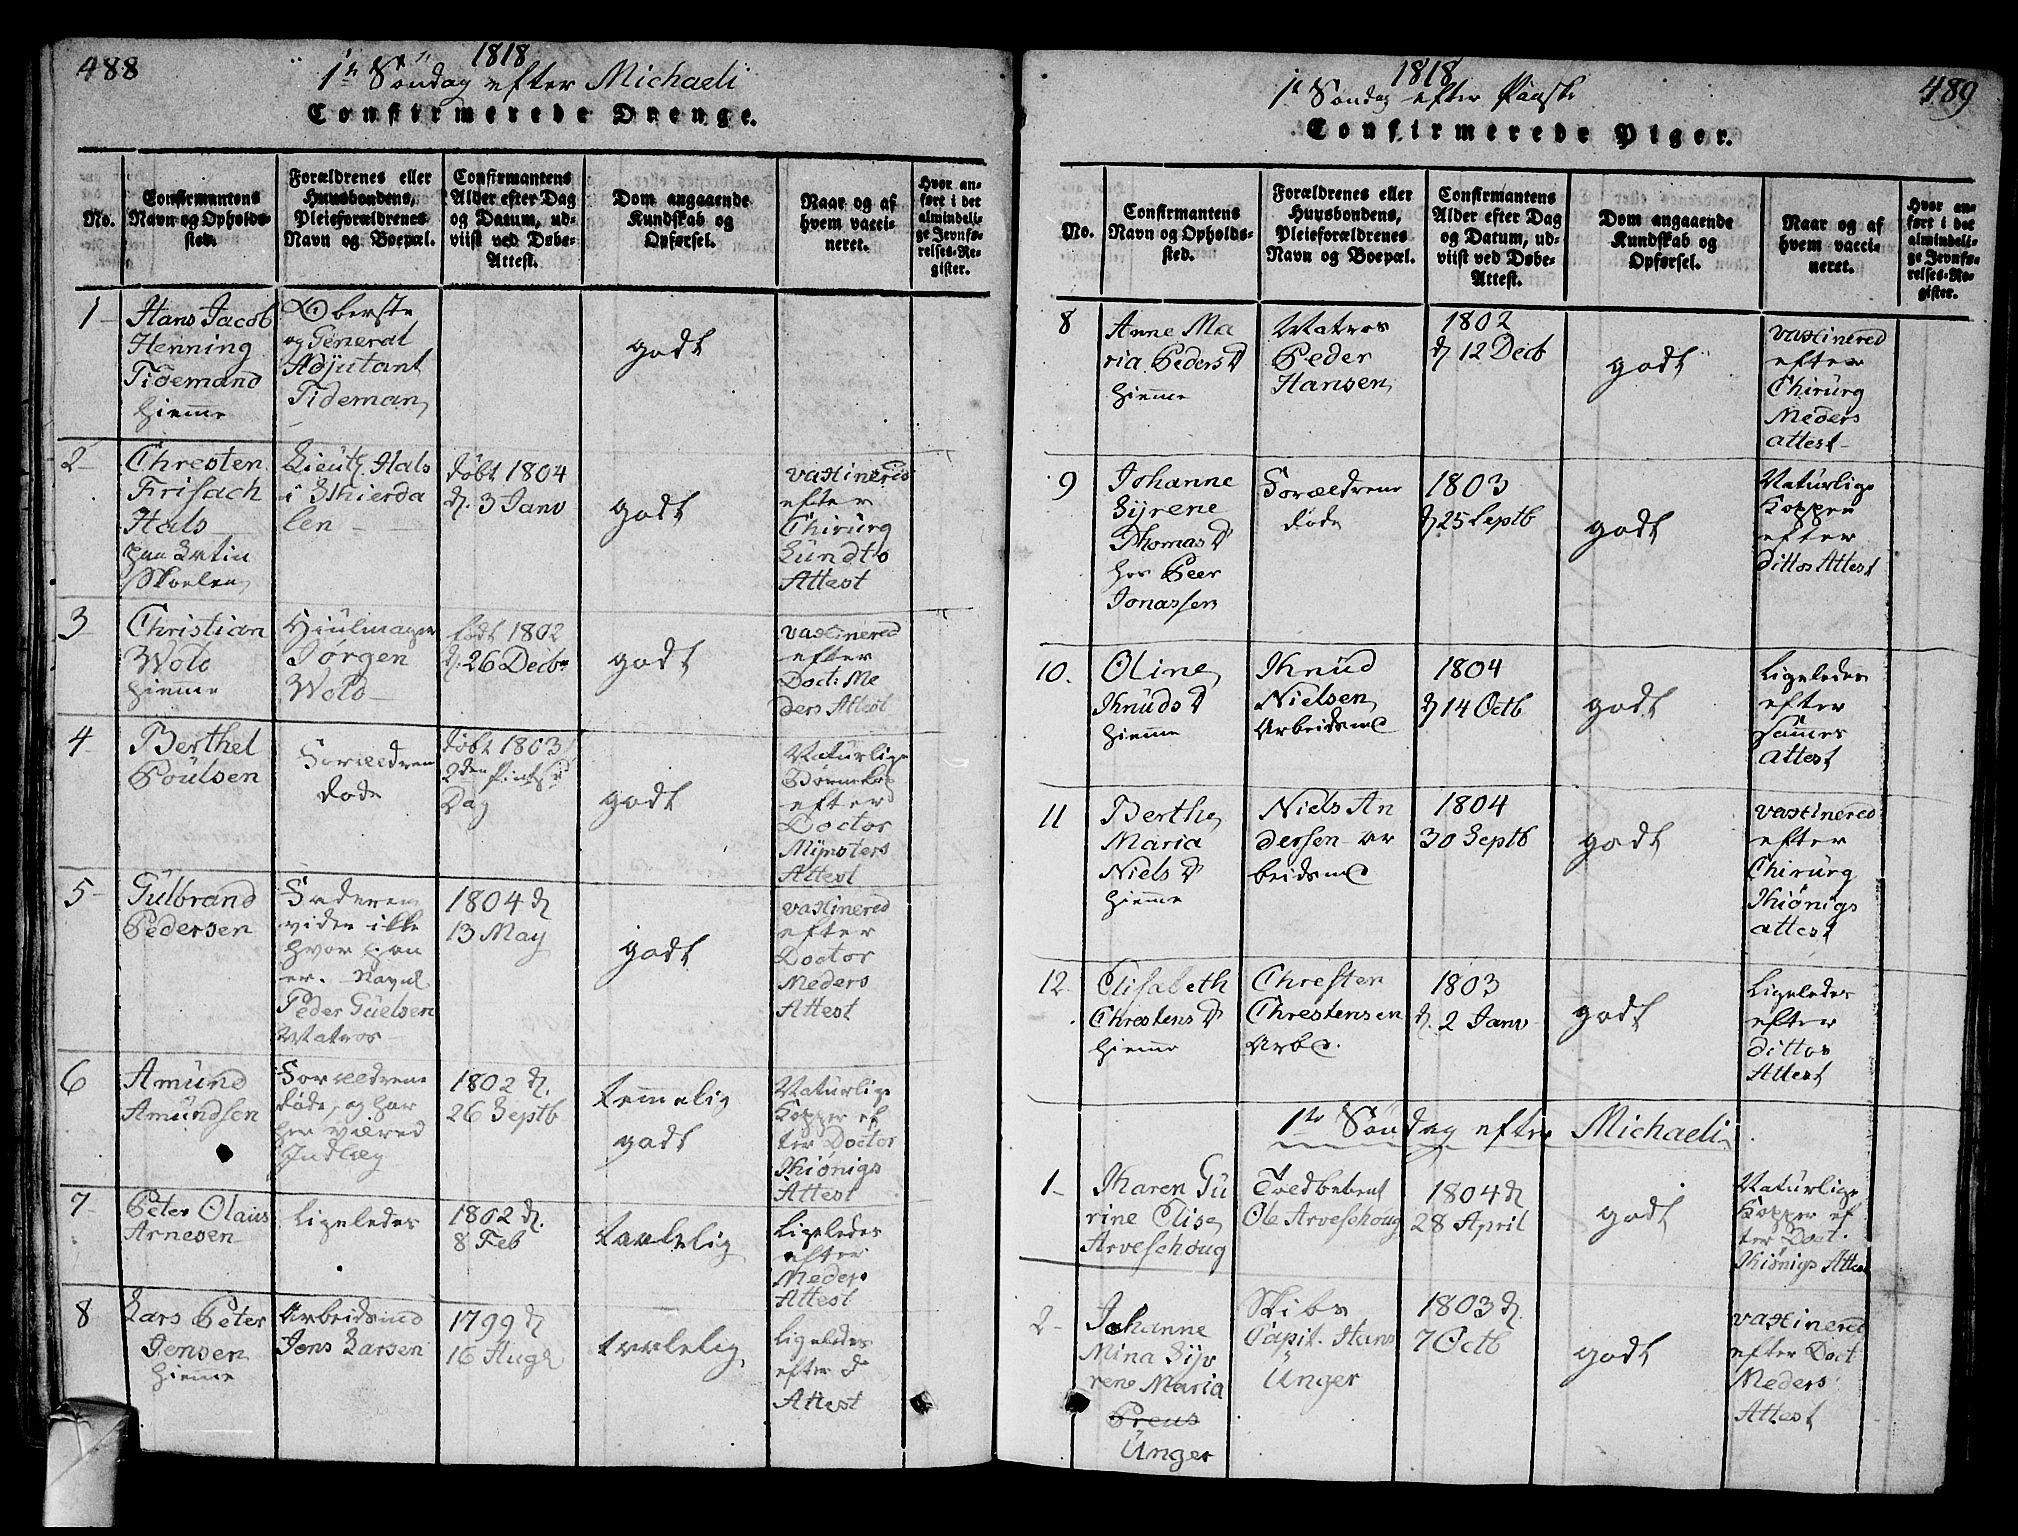 488
1818
1te Søndag efter Michaeli
Confirmerede Drenge.
No.
Confirmantens
Navn og Opholds-
sted.
Forældrenes eller
Huusbondens,
Pleieforældrenes
Navn og Boepæl.
Confirmantens
Alder efter Dag
og Datum, ud-
viist ved Døbe-
Attest.
Dom angaaende
Kundskab og
Opførsel.
Naar og af
hvem vacci-
neret.
Hvor an-
ført i det
almindeli-
ge Jevnfø-
relses-Re-
gister.
1
Hans Jacob
Henning
Tidemand
hiemme
Oberste
og General
Adjutant
Tideman
godt
2
Chresten
Frisach
Hals
paa Latin
Skoelen
Lieut. Hals
i Skierda
len
døbt 1804
d. 3 Janv
godt
vaxinered
efter
Chirurg
Lundto
Attest
3
Christian
Wold
hiemme
Hiulmager
Jørgen
Wold
født 1802
d. 26 Decbr
godt
vaxinered
efter
Doct: Me
ders Attest
4
Berthel
Poulsen
Forældrene
døde
døbt 1803
2den Pintse
Dag
godt
Naturlige
Børnekop
efter
Doctor
Mynsters
Attest
5
Gulbrand
Pedersen
Faderen
vides ikke
hvor han
er. Navnl
Peder Guelsen
Matros
1804 d
13 May
godt
vaxinered
efter
Doctor
Meders
Attest
6
Amund
Amundsen
Forældrene
døde, og har
her været
Indlæg
1802 d.
26 Septb
temmelig
godt
Naturlige
Kopper ef
ter Doctor
Kiønigs
Attest
7
Peter Olaus
Arnesen
Ligeledes
1802 d.
8 Feb
taalelig
Ligeledes
efter
Meders
Attest
8
Lars Peter
Jensen
hiemme
Arbeidsmd
Jens Larsen
1799 d
16 Aug
taalelig
Ligeledes
efter d
Attest
1818
489
1te Søndag efter Paaske
Confirmerede Piger.
No.
Confirmantens
Navn og Opholds-
sted.
Forældrenes eller
Huusbondens,
Pleieforældrenes
Navn og Boepæl.
Confirmantens
Alder efter Dag
og Datum, ud-
viist ved Døbe-
Attest.
Dom angaaende
Kundskab og
Opførsel.
Naar og af
hvem vacci-
neret.
Hvor an-
ført i det
almindeli-
ge Jevnfø-
relses-Re-
gister.
8
Anne Ma
ria Peders D
hiemme
Matros
Peder
Hansen
1802
d 12 Decb
godt
vaxinered
efter
Chirurg
Meders
attest
9
Johanne
Syrene
Thomas D
hos Peer
Jonassen
Forældrene
døde
1803
d 25 Septb
godt
Naturlige
Kopper
efter
dittos Attest
10.
Oline
Knuds D
hiemme
Knud
Nielsen
Arbeidsm
1804
d 14 Octb
godt
Ligeledes
efter
sammes
attest
11
Berthe
Maria
Niels D
hiemme
Niels An
dersen ar
beidsm
1804
30 Septb
godt
vaxinered
efter
Chirurg
Kiønigs
attest
12
Elisabeth
Chrestens D
hiemme
Chresten
Chrestensen
Arb
1803
d. 2 Janv
godt
Ligeledes
efter
dittos
Attest
1te Søndag efter Michaeli
1
Karen Gu
rine Elise
Arveschoug
Ole Arveschoug
1804 d
28 April
godt
Naturlige
Kopper ef
ter Doct.
Kiønigs Attest
2
Johanne
Mina Syv
rene Maria
Preus
Unger
Skibs
Capit. Hans
Unger
1803 d
7 Octb
godt
vaxinered
efter Doct
Meders
Attest